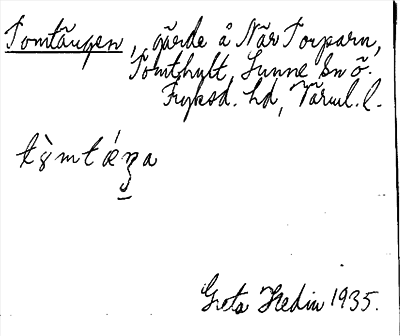 Tomtängen, gärde å När Torparn,
Tomthult, Sunne sn ö.
Fryksd. hd, Värml. l.
Greta Hedin 1935.